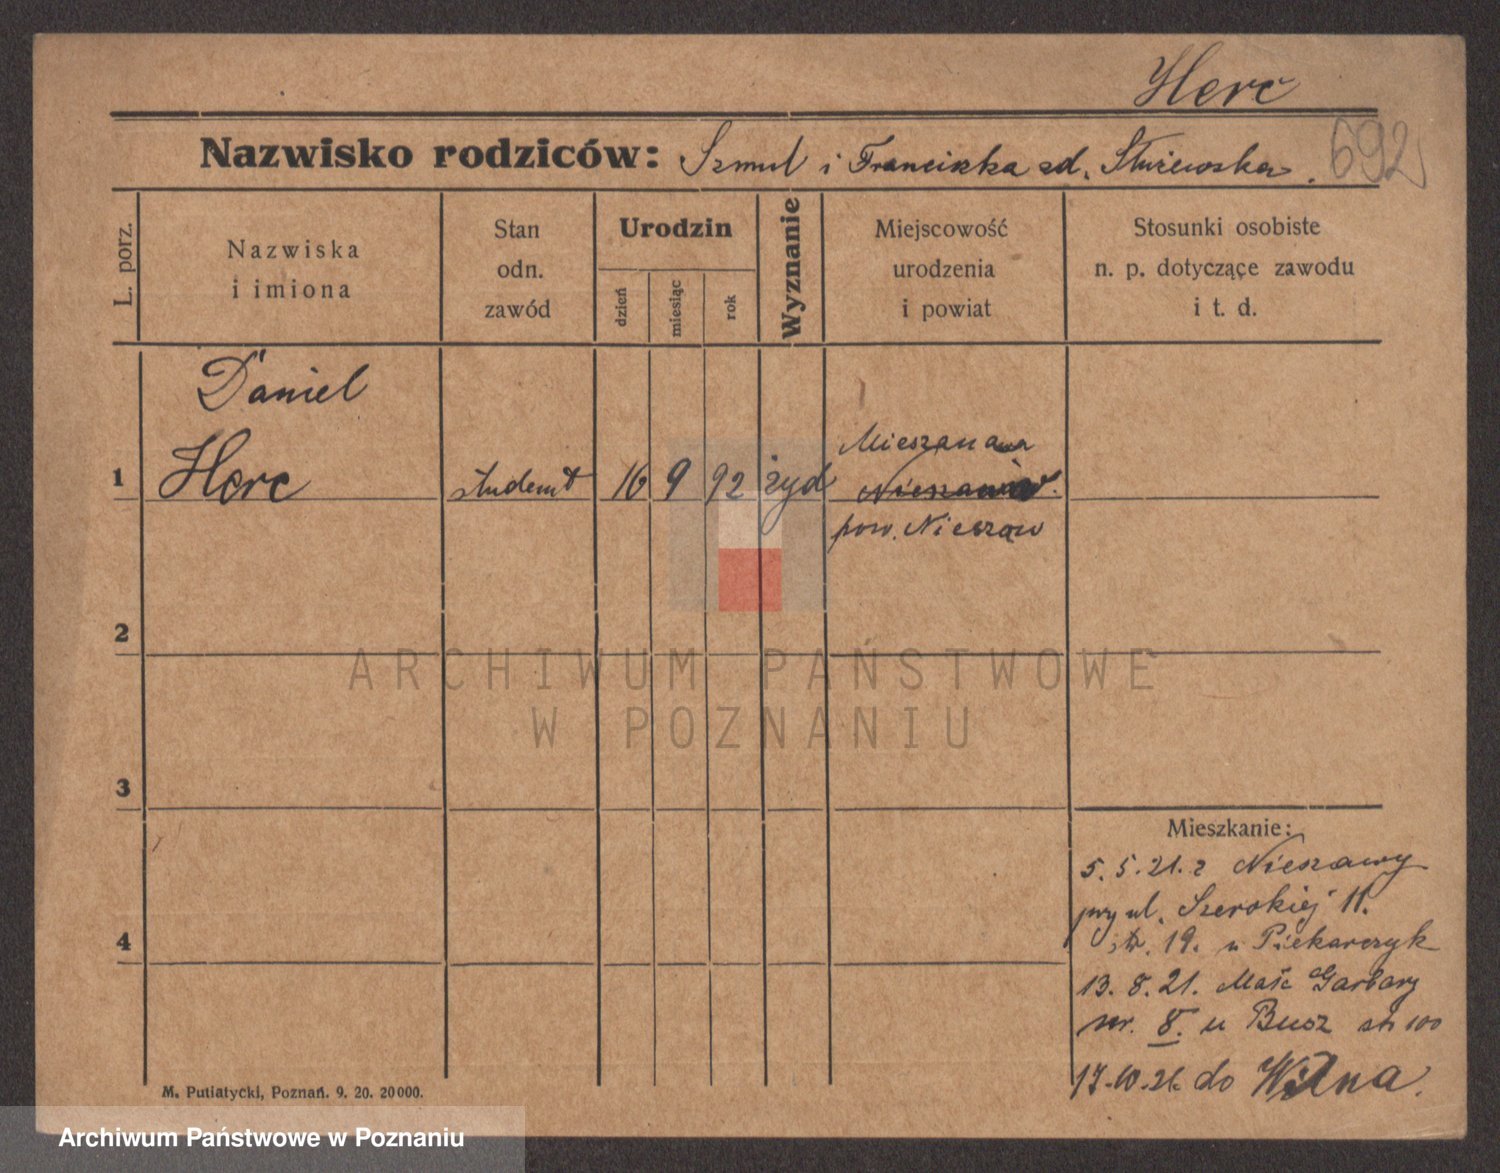 Herc
Nazwisko rodziców: Szmul i Franciszka zd. Służewska.
692
L. porz.
Nazwiska
i imiona
Stan
odn.
zawód
Urodzin
dzień
miesiąc
rok
Wyznanie
Miejscowość
urodzenia
i powiat
Stosunki osobiste
n. p. dotyczące zawodu
i t. d.
Daniel
1 Herc student 16 9 92 żyd
pow. Nieszaw
2
3
4
Mieszkanie:
5. 5. 21. z Nieszawy
przy ul. Szerokiej 11.
str. 19. u Piekarczyk
13. 8. 21. Małe Garbary
nr. 8. u Busz str 100
17.10.21. do Wilna.
M. Putiatycki, Poznań. 9. 20. 20000.
ARCHIWUM PAŃSTWOWE
W POZNANIU
Archiwum Państwowe w Poznaniu